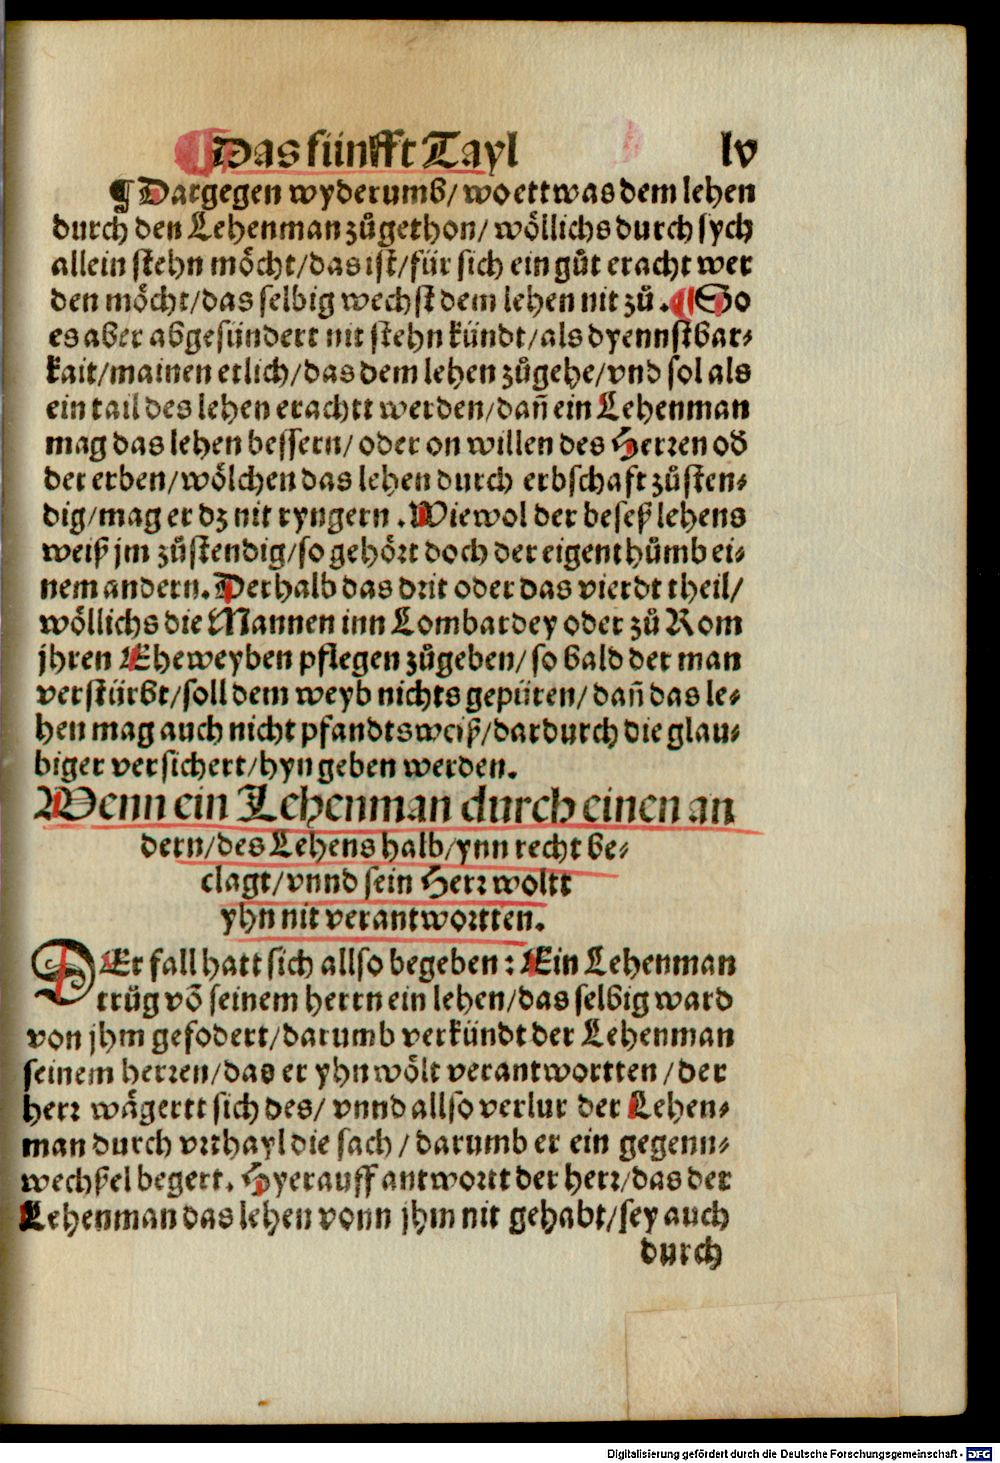 ¶ Das fünfft Tayl lv
¶ Dargegen wyderumb/ wo ettwas dem lehen
durch den Lehenman zůgethon/ wöllichs durch sych
allein stehn möcht/das ist/für sich ein gůt eracht wer
den möcht/das selbig wechst dem lehen nit zů. ¶ So
es aber abgesündert nit stehn kündt/als dyennstbar⸗
kait/mainen etlich/das dem lehen zůgehe/vnd sol als
ein tail des lehen erachtt werden/dañ ein Lehenman
mag das lehen bessern/ oder on willen des Herren od
der erben/wölchen das lehen durch erbschafft zůsten⸗
dig/mag er dz nit ryngern. Wiewol der beseß lehens
weiß jm zůstendig/so gehört doch der eigenthůmb ei⸗
nem andern. Derhalb das drit oder das vierdt theil/
wöllichs die Mannen inn Lombardey oder zů Rom
jhren Eheweyben pflegen zůgeben/ so bald der man
verstürbt/soll dem weyb nichts gepüren/ dañ das le⸗
hen mag auch nicht pfandtsweiß/dardurch die glau⸗
biger versichert/hyn geben werden.
Wenn ein Lehenman durch einen an
dern/des Lehens halb/ynn recht be⸗
clagt/vnnd sein Herr woltt
yhn nit verantwortten.
DEr fall hatt sich allso begeben: Ein Lehenman
trůg võ seinem herrn ein lehen/das selbig ward
von jhm gefodert/darumb verkündt der Lehenman
seinem herren/das er yhn wölt verantwortten/der
herr wägertt sich des/ vnnd allso verlur der Lehen⸗
man durch vrthayl die sach/ darumb er ein gegenn⸗
wechßel begert. Hyerauff antwortt der herr/das der
Lehenman das lehen vonn jhm nit gehabt/sey auch
durch
Digitalisierung gefördert durch die Deutsche Forschungsgemeinschaft - DFG